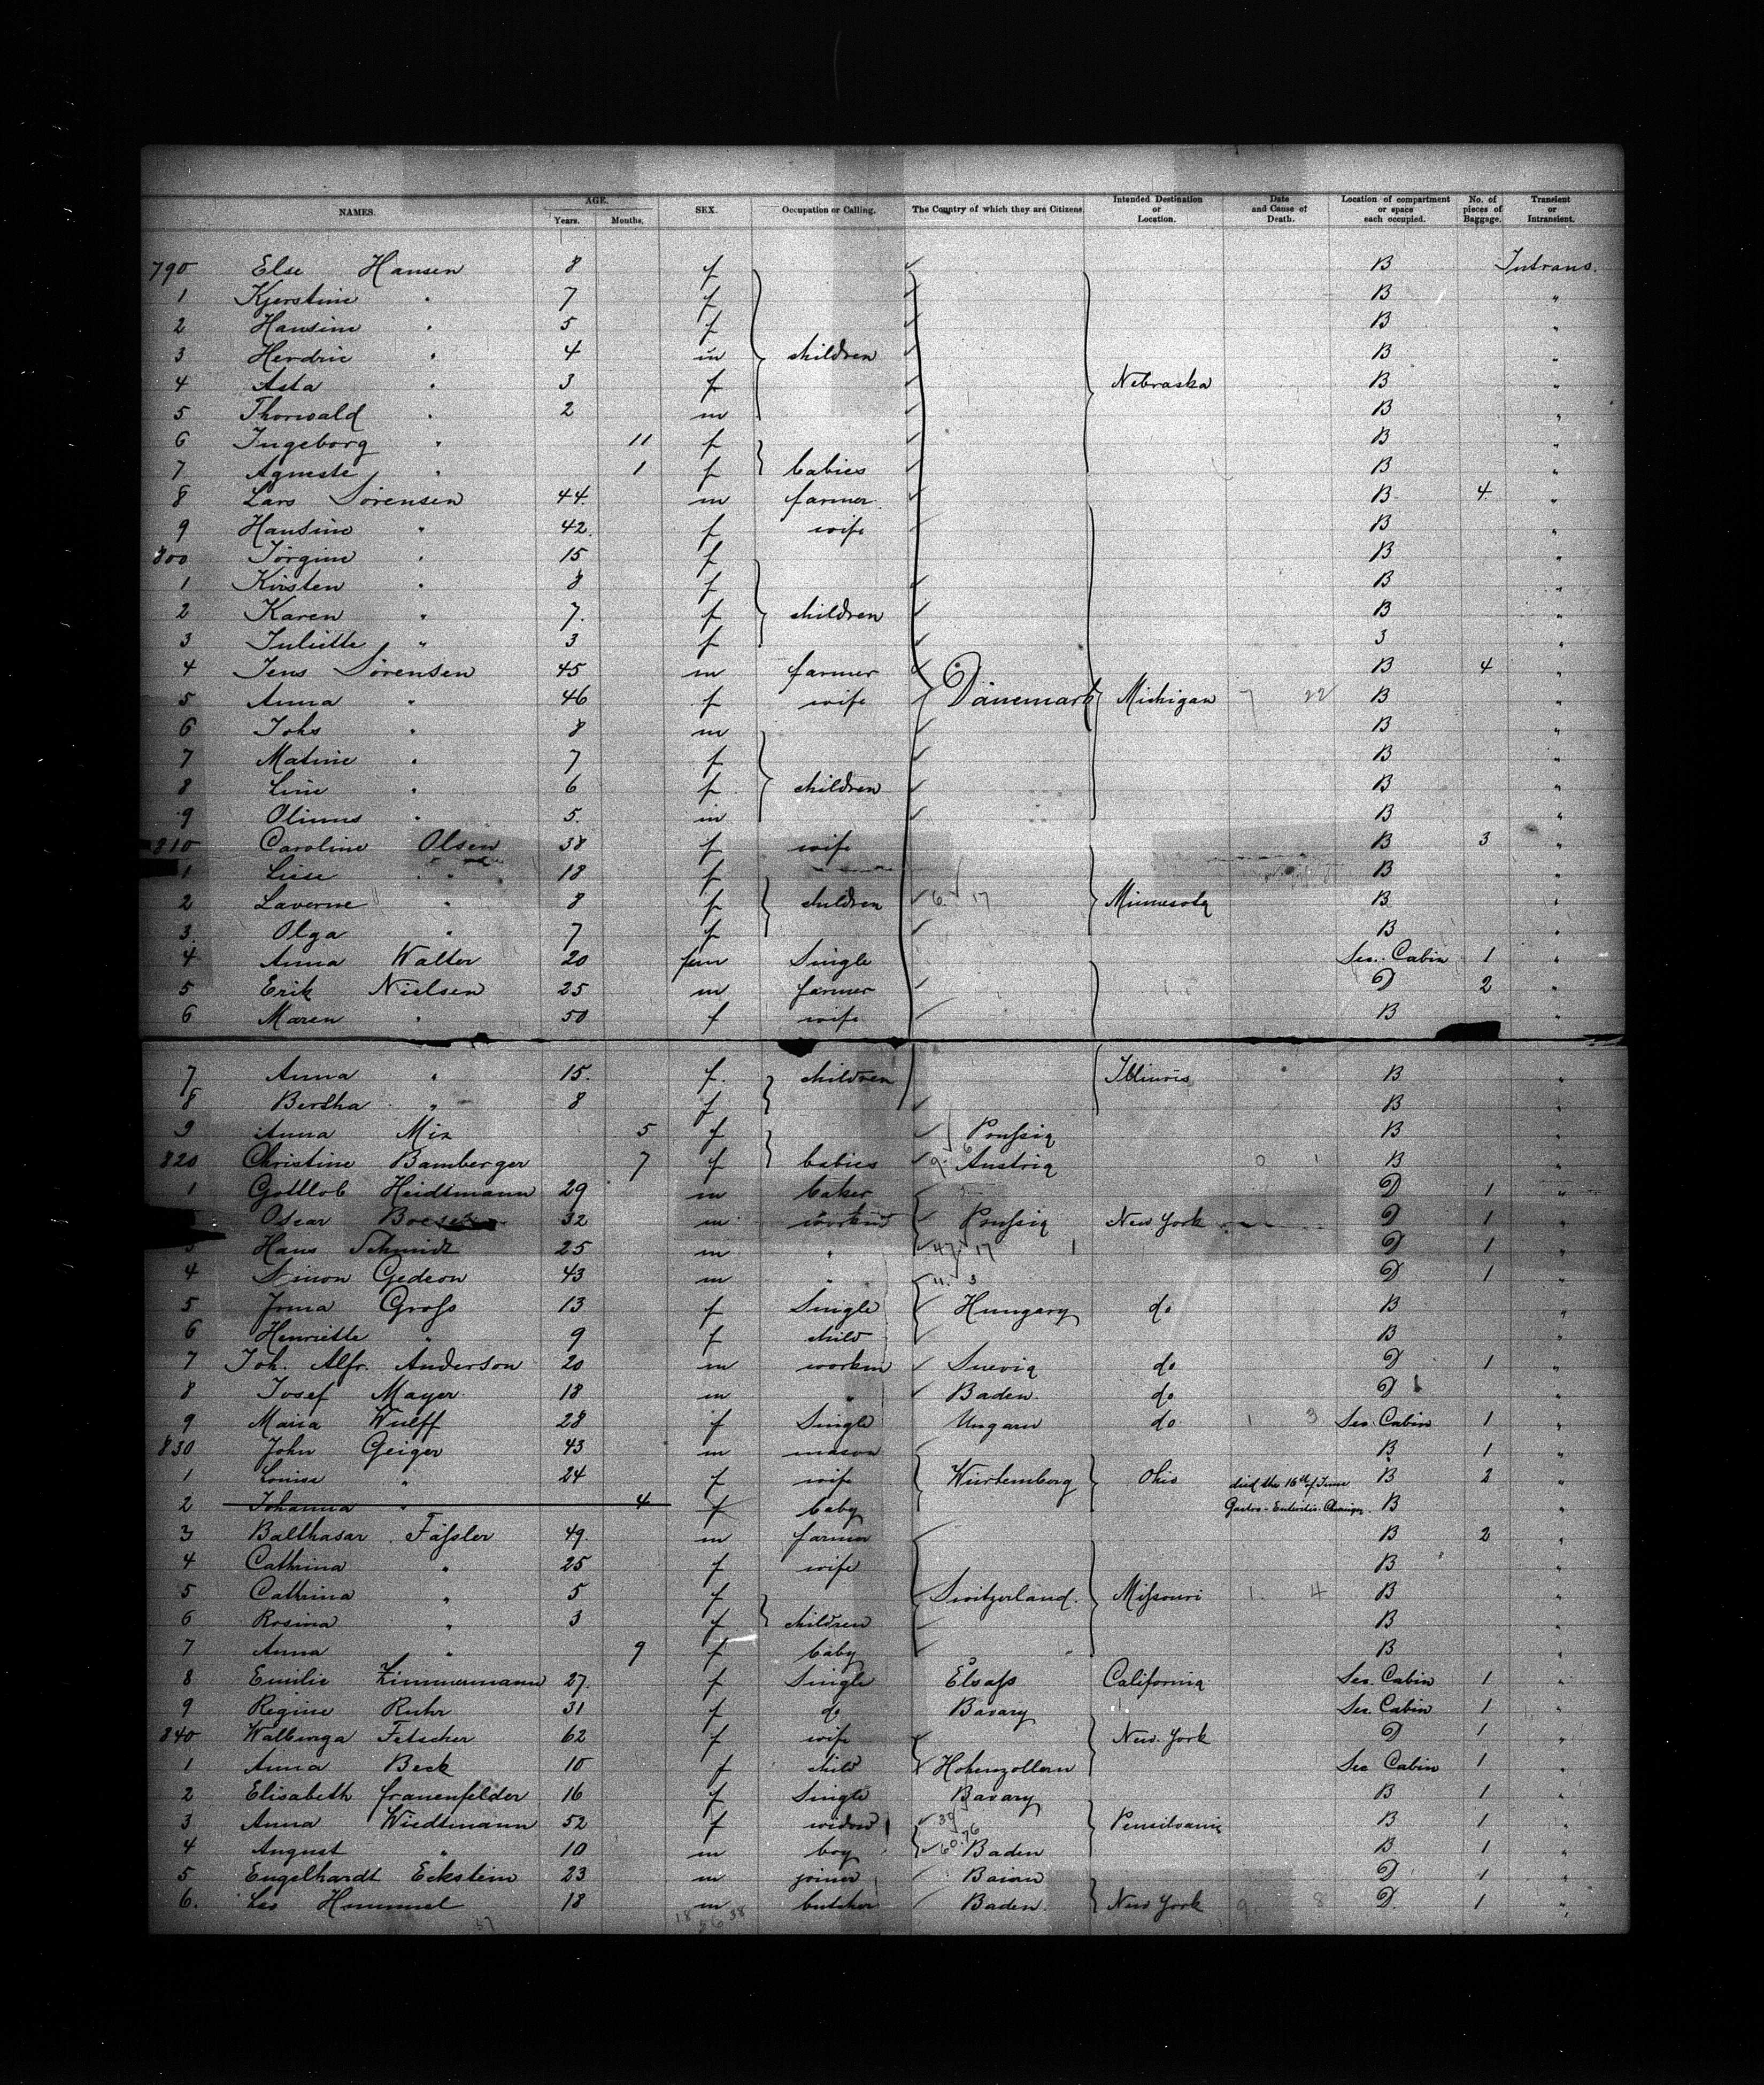 NAMES. AGE. Years. Months. SEX. Occupation or Calling. The Country of which they are Citizens. Intended Destination or Location. Date and Cause of Death. Location of compartment or space each occupied. No. of pieces of Baggage. Transient or Intransient.
790 Else Hansen 8 f B Intrans.
1 Kjerstine " 7 f B "
2 Hansine " 5 f B "
3 Herdric " 4 m children B "
4 Asta " 3 f Nebraska B "
5 Thorwald " 2 m B "
6 Ingeborg " 11 f B "
7 Agneste " 1 f babies B "
8 Lars Sörensen 44. m farmer. B 4 "
9 Hansine " 42. f wife B "
800 Jörgine " 15 f B "
1 Kirsten " 8 f B "
2 Karen " 7. f children B "
3 Juliette " 3 f 3 "
4 Jens Sörensen 45 m farmer B 4 "
5 Anna " 46 f wife Dänemark Michigan 7 22 B "
6 Johs " 8 m B "
7 Matine " 7 f B "
8 Line " 6 f children B "
9 Olinus " 5. m B "
810 Caroline Olsen 38 f wife B 3 "
1 Liese " 18 f B "
2 Laverne " 8 f children 6 17 Minnesota B "
3. Olga " 7 f B "
4 Anna Walter 20 fem Single Sec. Cabin 1 "
5 Erik Nielsen 25 m farmer D 2 "
6 Maren " 50 f wife B "
7 Anna " 15. f. children Illinois B "
8 Bertha " 8 f B "
9 Anna Mix 5 f Prussia B "
820 Christine Bamberger 7 f babies Austria B "
1 Gottlob Heidtmann 29 m baker D 1 "
Oscar 32 m Prussia New York D 1 "
3 Hans Schmidt 25 m " 47 17 D 1 "
4 Simon Gedeon 43 m " D 1 "
5 Irma Gross 13 f Single Hungary do B "
6 Henriette " 9 f child B "
7 Joh. Alfr. Anderson 20 m workm Suevia do D 1 "
8 Josef Mayer 18 m " Baden. do D 1 "
9 Maria Wulff 28 f Single Ungarn do 1 3 Sec. Cabin 1 "
830 John Geiger 43 m mason B 1 "
1 Louise " 24 f wife Würtemberg Ohio died the 16th of June B 2 "
2 Johanna " 4 f baby Gastro-Enteritis B "
3 Balthasar Fässler 49. m farmer B 2 "
4 Cathrina " 25 f wife B "
5 Cathrina " 5 f Switzerland. Missouri 1 4 B "
6 Rosina " 3 f children B "
7 Anna " 9 f baby B "
8 Emilie Zimmermann 27. f Single Elsass California Sec. Cabin 1 "
9 Regine Ruhr 31 f do Bavary Sec. Cabin 1 "
840 Walburga Fetscher 62 f wife New York D 1 "
1 Anna Beck 10 f child Hohenzollern Sec Cabin 1 "
2 Elisabeth Frauenfelder 16 f Single Bavary B 1 "
3 Anna Wiedtmann 52 f widow Pensilvania B 1 "
4 August " 10 m boy Baden B 1 "
5 Engelhardt Eckstein 23 m joiner Baiern D 1 "
6. Leo Hummel 18 m butcher Baden. New York 9. 8 D 1 "
57 18 56 38